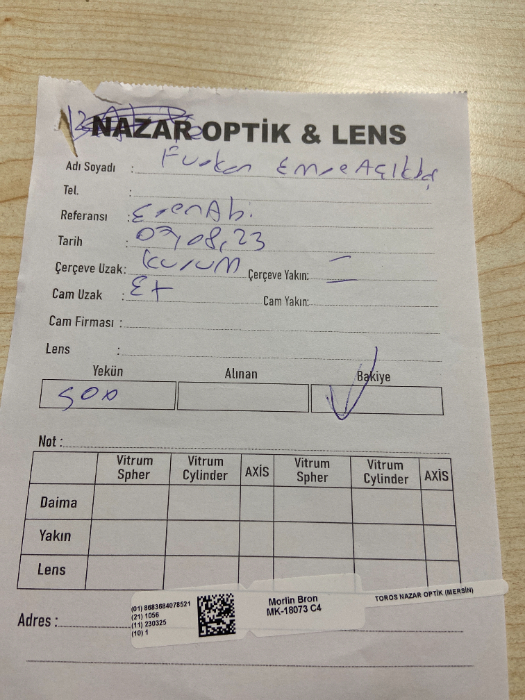 NAZAR OPTİK & LENS
Adı Soyadı : Furkan Emre Açıkbaş
Tel. :
Referansı : Eren Abi.
Tarih : 07,08,23
Çerçeve Uzak: Kurum Çerçeve Yakın: —
Cam Uzak : E+ Cam Yakın:
Cam Firması :
Lens :
Yekün Alınan Bakiye
500
Not :
Vitrum Spher Vitrum Cylinder AXİS Vitrum Spher Vitrum Cylinder AXİS
Daima
Yakın
Lens
Adres :
(01) 8683684078521
(21) 1056
(11) 230325
(10) 1
Morlin Bron
MK-18073 C4
TOROS NAZAR OPTİK (MERSİN)